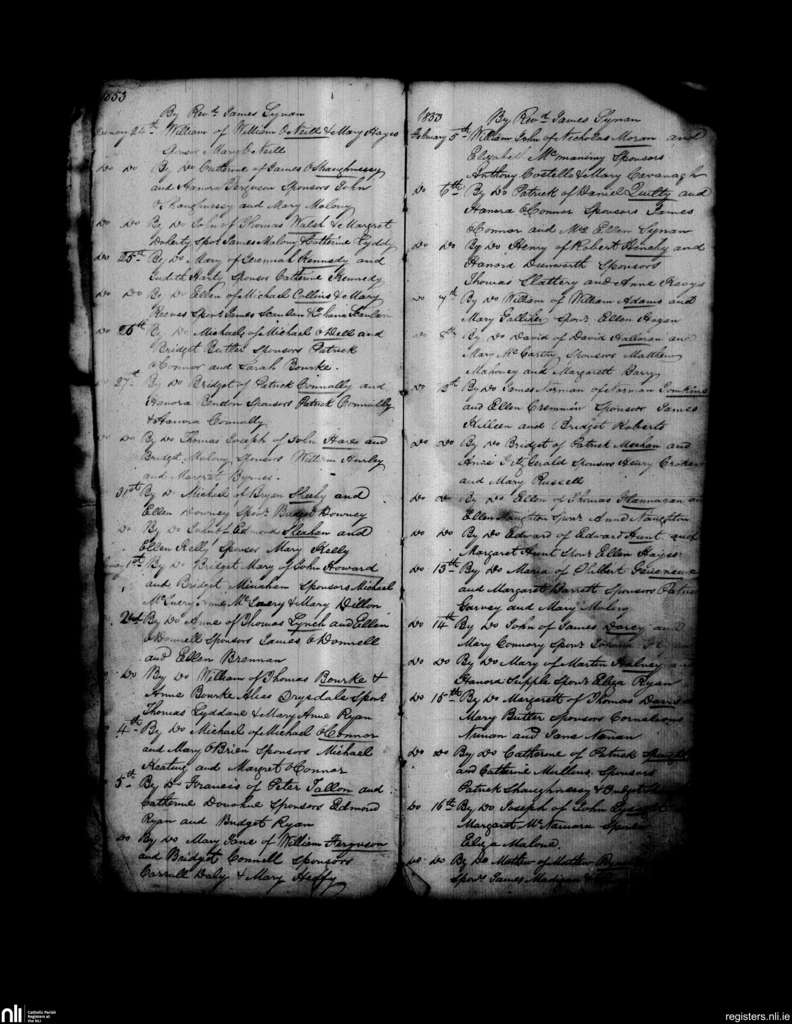 1853
By Revd. James Synan
24th William of William O Neill & Mary Hayes
Mary O Neill
Do Do By Do Catherine of James O Shaughnessy
and Hanora Ferguson Sponsors John
O Shaughnessy and Mary Malony
Do Do By Do John of Thomas Walsh & Margret
Doherty Spors James Malony & Catherine Lyddy
Do 25th By Do Mary of Jeremiah Kennedy and
Judith Sponsor Catherine Kennedy
Do Do By Do Ellen of Michael Collins & Mary
Reeves Spors James Scanlan & Scanlan
Do 26th By Do Michael of Michael O Dell and
Bridget Butler Sponsors Patrick
O Connor and Sarah Bourke.
27th By Do Bridget of Patrick Connolly and
Hanora Sponsors Patrick Connolly
& Hanora Connolly
Do Do By Do Thomas Joseph of John Hares and
Bridget Malony Sponsors William Hurley
and Margret Byrnes.
31st By Do Michael of Bryan Sheehy and
Ellen Downey Spors Bridget Downey
Do By Do John of Edmond Sheahan and
Ellen Kelly Sponsor Mary Kelly
1st By Do Bridget Mary of John Howard
and Bridget Minahan Sponsors Michael
& Mary Dillon
2nd By Do Anne of Thomas Lynch and Ellen
O Donnell Sponsors James O Donnell
and Ellen Brennan
Do By Do William of Thomas Bourke &
Anne Bourke Alias Drysdale Spors
Thomas Lyddane & Mary Anne Ryan
4th By Do Michael of Michael O Connor
and Mary O Brien Sponsors Michael
Keating and Margret O Connor
5th By Do Francis of Peter Tallon and
Catherine Donohue Sponsors Edmond
Ryan and Bridget Ryan
Do By Do Mary Jane of William Ferguson
and Bridget Connell Sponsors
Carroll Daly & Mary Heffy
1853
By Revd. James Synan
February 5th William John of Nicholas Moran and
Elizabeth McManiny Sponsors
Anthony Costello & Mary Cavanagh
Do 6th By Do Patrick of Daniel Quilty and
Hanora O Connor Sponsors James
O Connor and Mrs Ellen Synan
Do Do By Do Henry of Robert and
Hanora Dunworth Sponsors
Thomas Slattery and Anne Keays
Do 7th By Do William of William Adams and
Mary Spors Ellen Hagan
Do 8th By Do David of David Halloran and
Mary McCarthy Sponsors Matthew
Mahoney and Margarett Barry
Do By Do James Norman of Norman
and Ellen Cremmin Sponsors James
Killeen and Bridget Roberts
Do Do By Do Bridget of Patrick Meehan and
Fitzgerald Sponsors Henry
and Mary Russell
Do Do By Do Ellen of Thomas Flannagan
Ellen Naughton Spors Anne Naughton
Do Do By Do Edward of Edward Hunt and
Margaret Hunt Spors Ellen Hayes
Do 13th By Do Maria of
and Margaret Barrett Sponsors
Garvey and Mary Malony
Do 14th By Do John of James Darcy and
Mary Connory Spors
Do Do By Do Mary of Martin and
Hanora Supple Spors Eliza Ryan
Do 15th By Do Margarett of Thomas
Mary Butler Sponsors Cornelious
Nunan and Jane Nunan
Do Do By Do Catherine of Patrick
and Catherine Mullins Sponsors
Patrick Shaughnessy & Bridget
Do 16th By Do Joseph of John
Margaret McNamara
Eliza Malone.
Do Do By Do Mathew of Mathew
Spors James Madigan
nli
Catholic Parish
Registers at
the NLI
registers.nli.ie